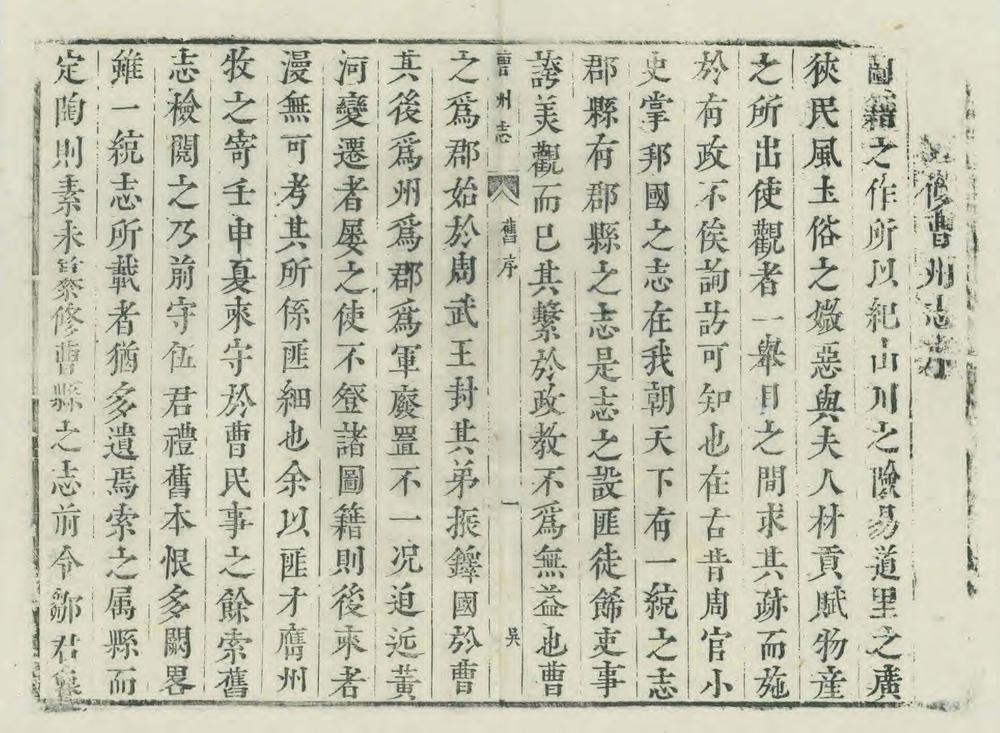 修曹州志序
圖籍之作所以紀山川之險易道里之廣
狹民風土俗之媺惡與夫人材貢賦物産
之所出使觀者一舉目之間求其跡而施
於有政不俟詢訪可知也在古昔周官小
史掌邦國之志在我朝天下有一統之志
郡縣有郡縣之志是志之設匪徒餙吏事
誇美觀而已其繫於政教不爲無益也曹
曹州志 舊序 一 吳
之爲郡始於周武王封其弟振鐸國於曹
其後爲州爲郡爲軍廢置不一况迫近黃
河變遷者屡之使不登諸圖籍則後來者
漫無可考其所係匪細也余以匪才膺州
牧之寄壬申夏來守於曹民事之餘索舊
志檢閱之乃前守伍君禮舊本恨多闕畧
雖一統志所載者猶多遺焉索之属縣而
定陶則素未嘗修曹縣之志前令鄒君